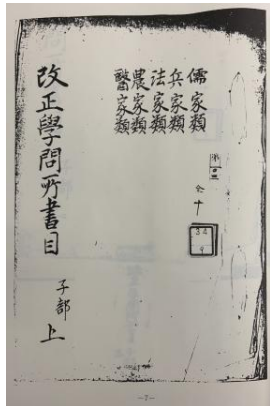 儒家類
兵家類
法家類
農家類
醫家類
全
十
34
9
改正學問所書目
子部
上
—7—